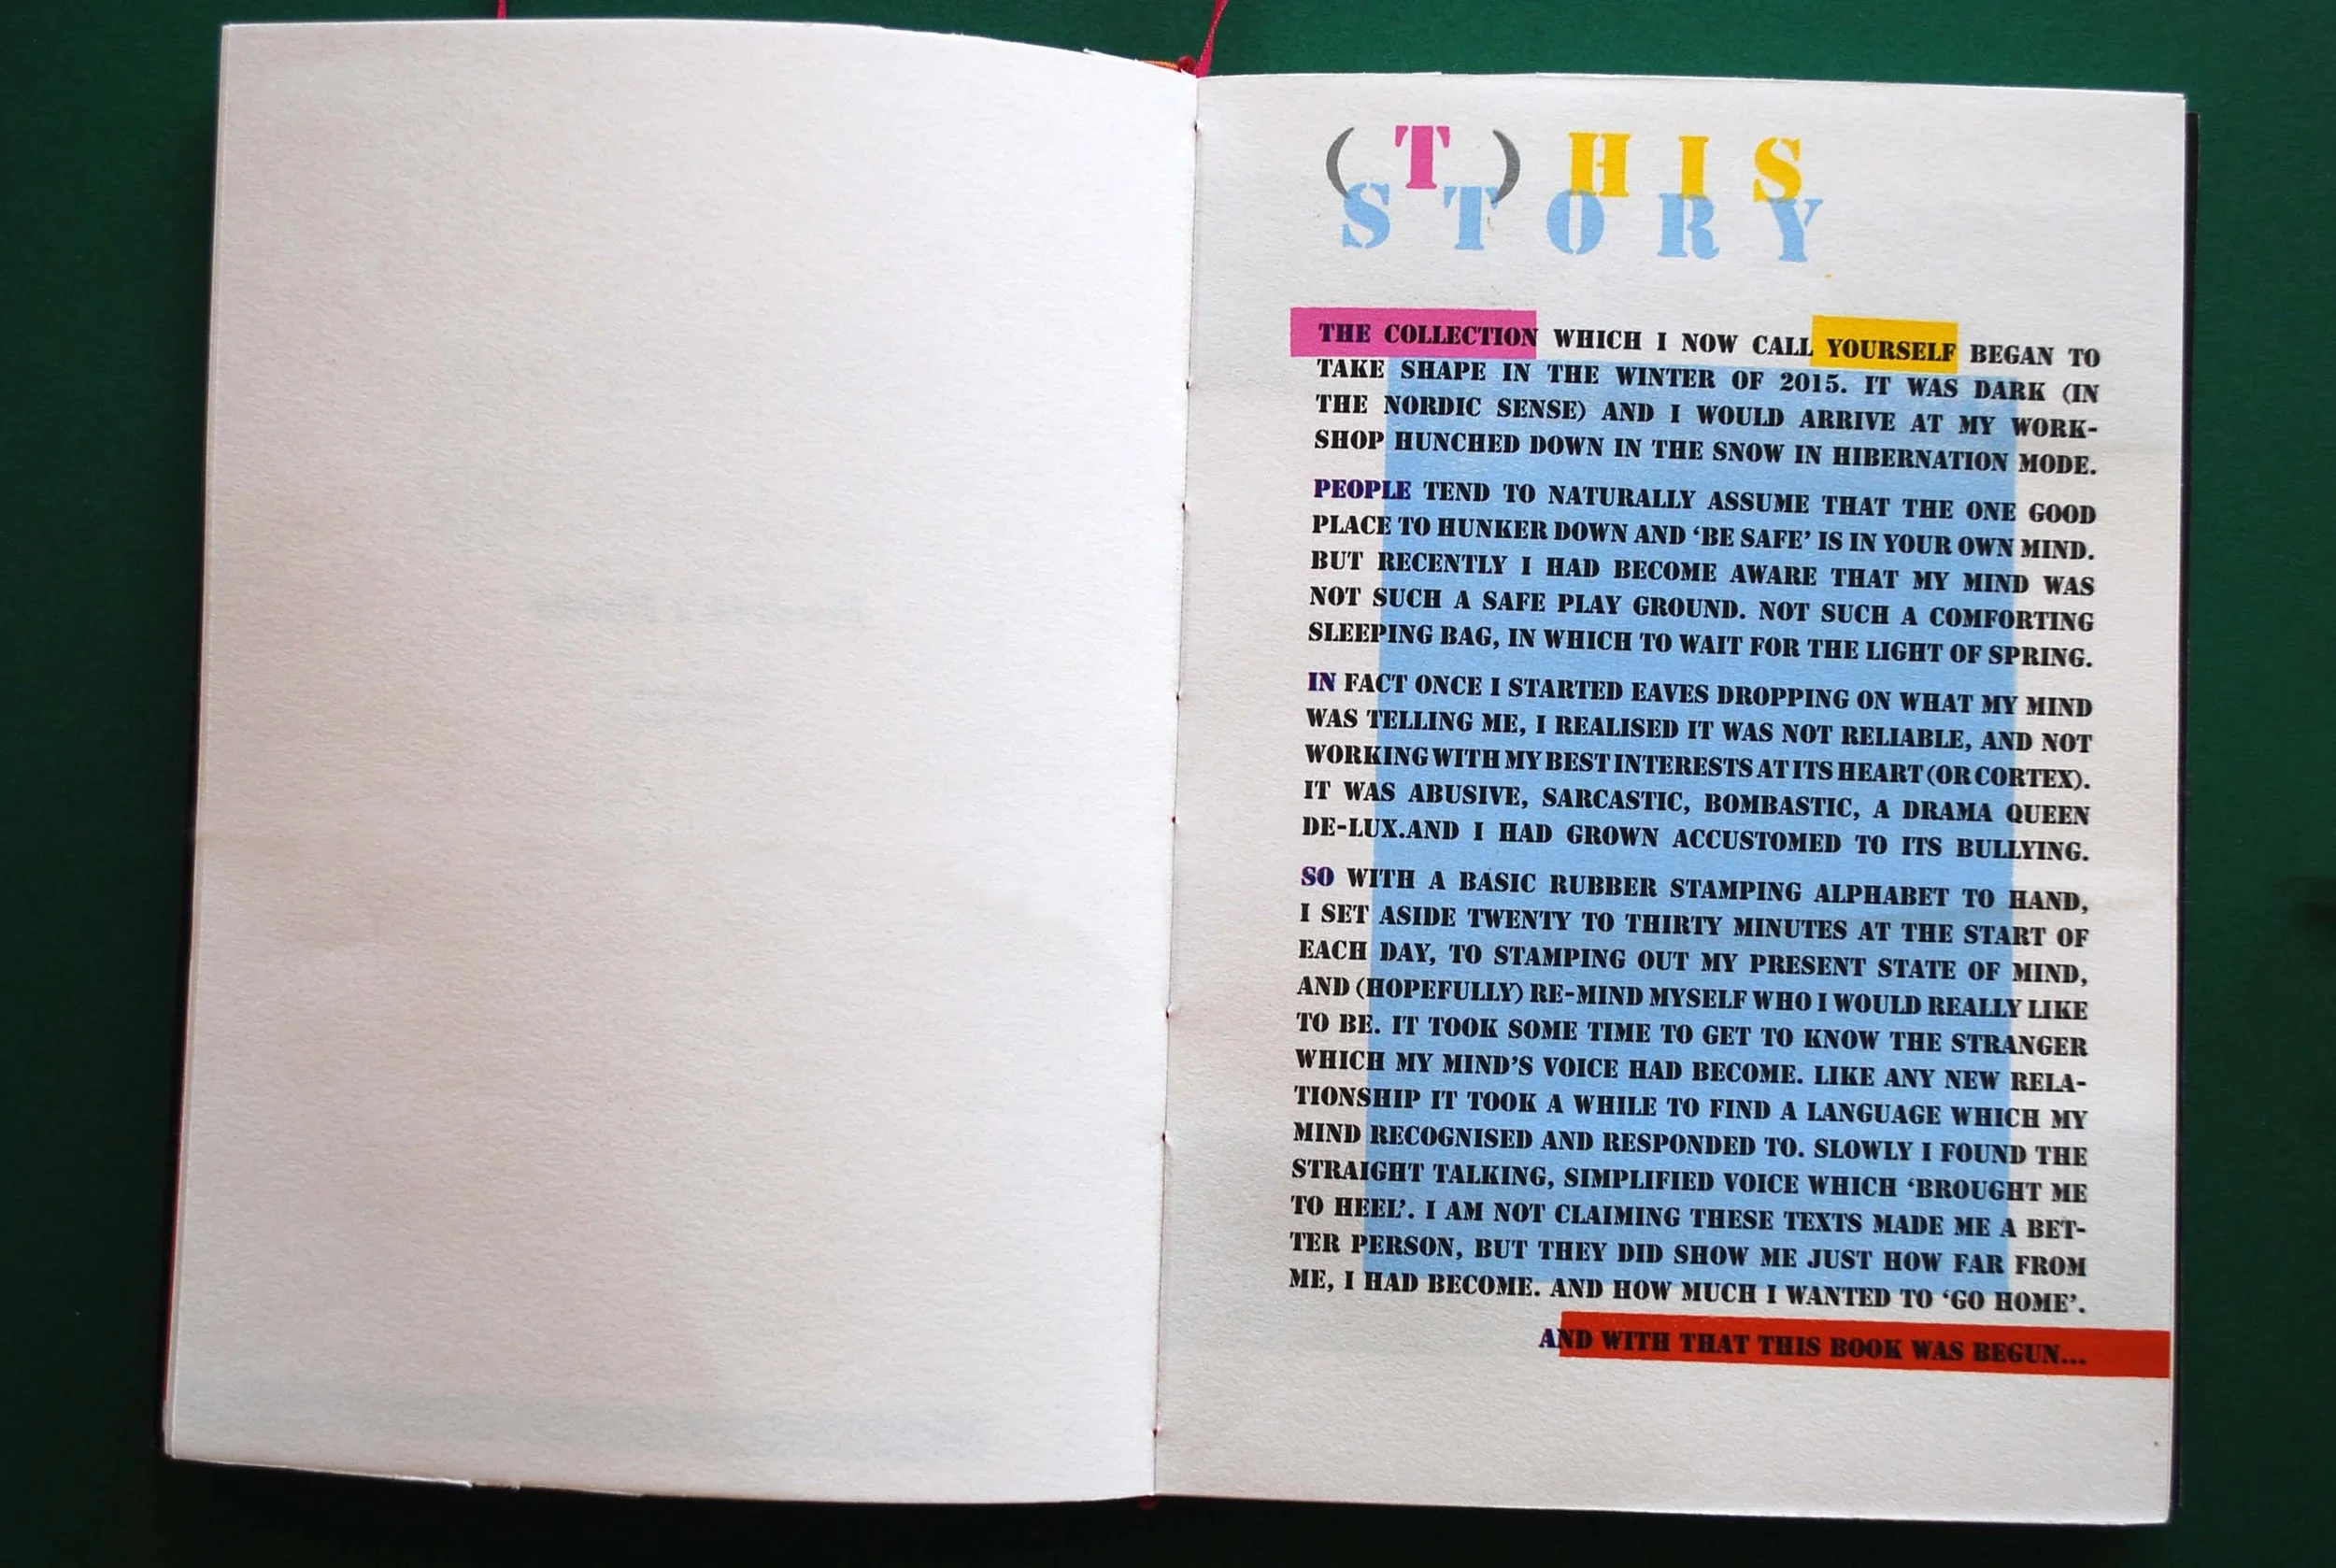 (T)HIS
STORY
THE COLLECTION WHICH I NOW CALL YOURSELF BEGAN TO
TAKE SHAPE IN THE WINTER OF 2015. IT WAS DARK (IN
THE NORDIC SENSE) AND I WOULD ARRIVE AT MY WORK-
SHOP HUNCHED DOWN IN THE SNOW IN HIBERNATION MODE.
PEOPLE TEND TO NATURALLY ASSUME THAT THE ONE GOOD
PLACE TO HUNKER DOWN AND ‘BE SAFE’ IS IN YOUR OWN MIND.
BUT RECENTLY I HAD BECOME AWARE THAT MY MIND WAS
NOT SUCH A SAFE PLAY GROUND. NOT SUCH A COMFORTING
SLEEPING BAG, IN WHICH TO WAIT FOR THE LIGHT OF SPRING.
IN FACT ONCE I STARTED EAVES DROPPING ON WHAT MY MIND
WAS TELLING ME, I REALISED IT WAS NOT RELIABLE, AND NOT
WORKING WITH MY BEST INTERESTS AT ITS HEART (OR CORTEX).
IT WAS ABUSIVE, SARCASTIC, BOMBASTIC, A DRAMA QUEEN
DE-LUX.AND I HAD GROWN ACCUSTOMED TO ITS BULLYING.
SO WITH A BASIC RUBBER STAMPING ALPHABET TO HAND,
I SET ASIDE TWENTY TO THIRTY MINUTES AT THE START OF
EACH DAY, TO STAMPING OUT MY PRESENT STATE OF MIND,
AND (HOPEFULLY) RE-MIND MYSELF WHO I WOULD REALLY LIKE
TO BE. IT TOOK SOME TIME TO GET TO KNOW THE STRANGER
WHICH MY MIND’S VOICE HAD BECOME. LIKE ANY NEW RELA-
TIONSHIP IT TOOK A WHILE TO FIND A LANGUAGE WHICH MY
MIND RECOGNISED AND RESPONDED TO. SLOWLY I FOUND THE
STRAIGHT TALKING, SIMPLIFIED VOICE WHICH ‘BROUGHT ME
TO HEEL’. I AM NOT CLAIMING THESE TEXTS MADE ME A BET-
TER PERSON, BUT THEY DID SHOW ME JUST HOW FAR FROM
ME, I HAD BECOME. AND HOW MUCH I WANTED TO ‘GO HOME’.
AND WITH THAT THIS BOOK WAS BEGUN...